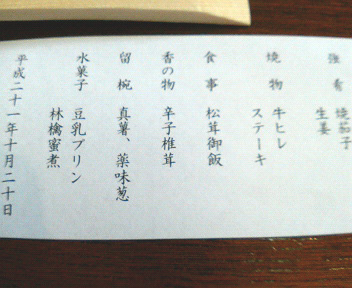 強肴 焼茄子
生姜
焼物 牛ヒレ
ステーキ
食事 松茸御飯
香の物 辛子椎茸
留椀 真薯、薬味葱
水菓子 豆乳プリン
林檎蜜煮
平成二十一年十月二十日